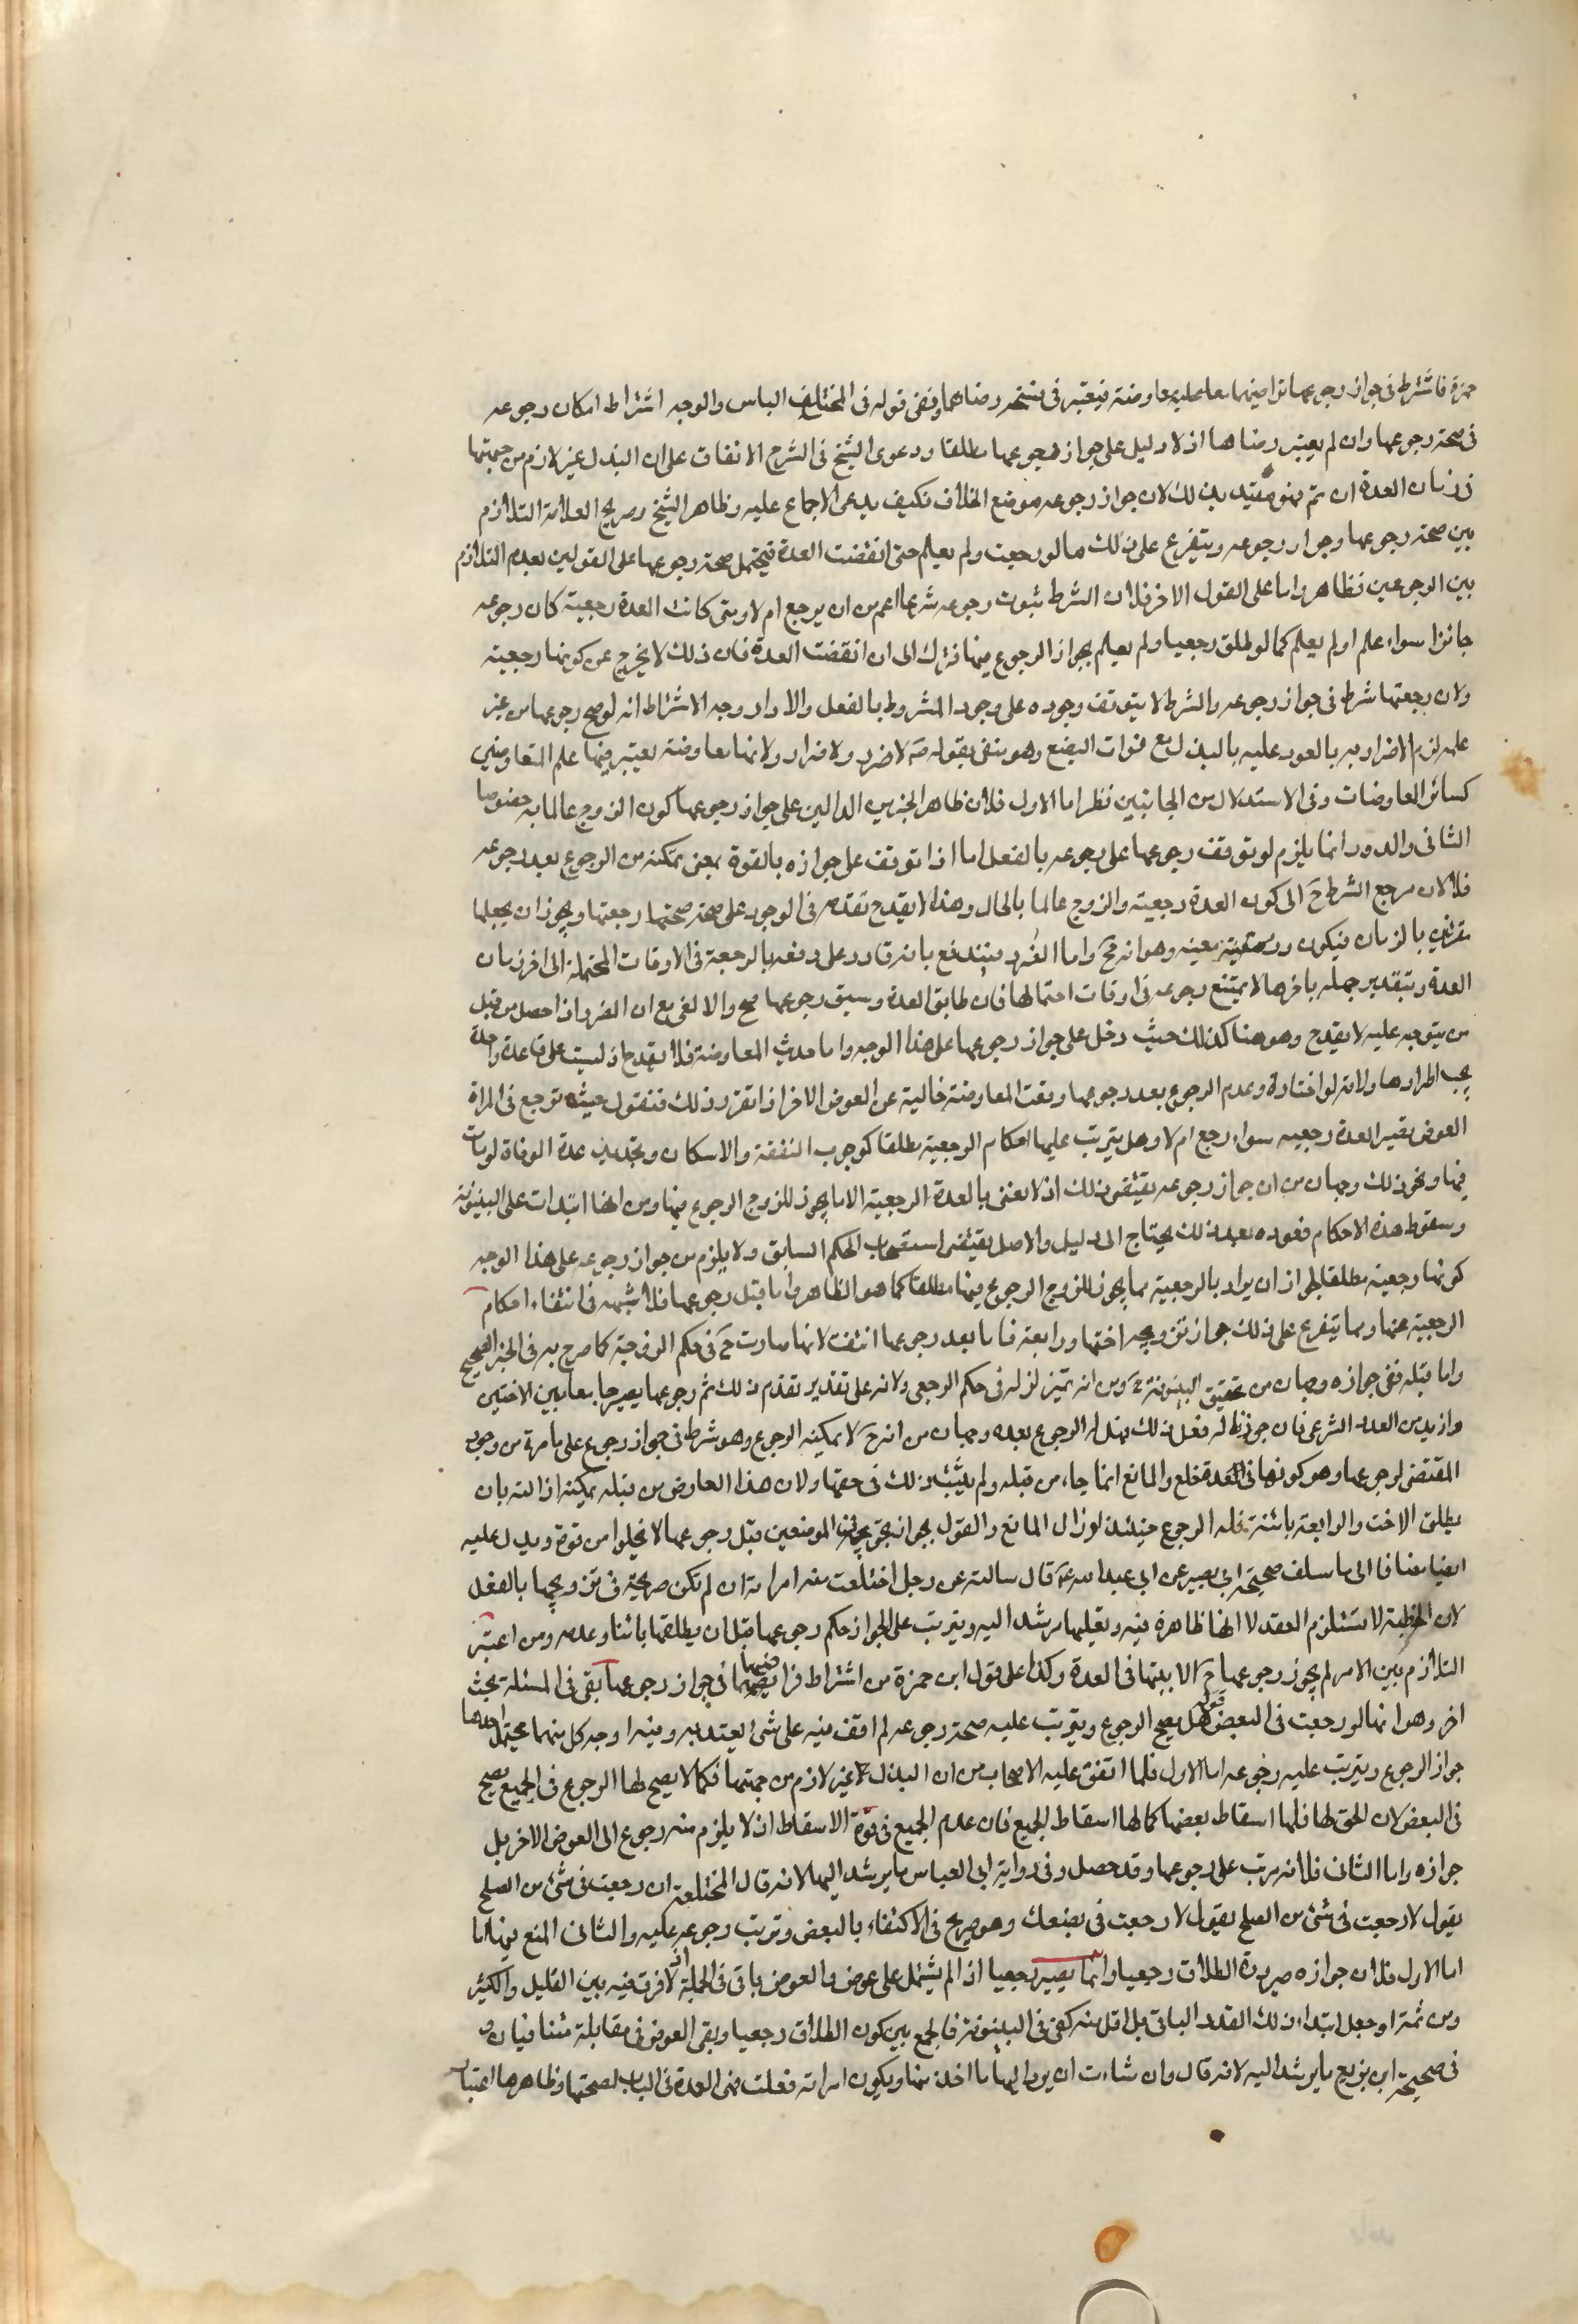 حمزة فاشترط فى جواز رجوعها تراضيهما معا عليه معاوضة فيعتبر فى فسخه رضاهما ونفى قوله فى المختلف الباس والوجه اشتراط امكان رجوعه
فى صحة رجوعها وان لم يعتبر رضاها اذ لا دليل على جواز رجوعها مطلقا ودعوى الشيخ فى الشرح الاتفاق على ان البذل غير لازم من جهتها
زمان العدة ان تم فهو مقيد بذلك لان جواز رجوعه موضع الخلاف فكيف يدعى الاجماع عليه وظاهر الشيخ وصريح العلامة التلازم
بين صحة رجوعها وجواز رجوعه ويتفرع على ذلك ما لو رجعت ولم يعلم حتى انقضت العدة فيحتمل صحة رجوعها على القولين لعدم التلازم
بين الرجوعين فظاهر واما على القول الاخر فلان الشرط ثبوت رجوعه شرعا اعم من ان يرجع ام لا ومتى كانت العدة رجعية كان رجوعه
جائزا سواء علم او لم يعلم كما لو طلق رجعيا ولم يعلم بجواز الرجوع فيها فترك الى ان انقضت العدة فان ذلك لا يخرج عن كونها رجعية
ولان رجعتها شرط فى جواز رجوعه والشرط لا يتوقف وجوده على وجود المشروط بالفعل والا دار وجه الاشتراط انه لو صح رجوعها من غير
علمه لزم الاضرار به بالعود عليه بالبذل مع فوات البضع وهو منفى بقوله ص لا ضرر ولا ضرار ولانها معاوضة يعتبر فيها علم المتعاوضين
كسائر المعاوضات وفى الاستدلال من الجانبين نظر اما الاول فلان ظاهر الخبرين الدالين على جواز رجوعها كون الزوج عالما به خصوصا
الثانى والدور انما يلزم لو توقف رجوعها على رجوعه بالفعل اما اذا توقف على جوازه بالقوة بمعنى تمكنه من الرجوع بعد رجوعه
فلا لان مرجع الشرط ح الى كون العدة رجعية والزوج عالما بالحال وهذا لا يقدح تقدمه فى الوجود على صحة صحتها رجعتها ويجوز ان يجعلها
مقترنين بالزمان فيكون دور معية وهو انه صح واما الضرر فيندفع بانه قادر على دفعه بالرجعة فى الاوقات المحتملة الى اخر زمان
العدة وبتقدير جهله باخرها لا يمتنع رجوعه فى اوقات احتمالها فان طابق العدة وسبق رجوعها صح والا لغى مع ان الضرر اذا حصل من قبل
من يتوجه عليه لا يقدح وهو هنا كذلك حيث دخل على جواز رجوعها على هذا الوجه واما حديث المعاوضة فلا يقدح اذ ليست على قاعدة واحدة
يجب اطرادها ولانه لو اختار وعدم الرجوع بعد رجوعها وقعت المعاوضة خالية عن العوض الاخر اذا تقرر ذلك فنقول حيث ترجع فى المراة
العوض تصير العدة رجعيه سواء رجع ام لا وهل يترتب عليها احكام الرجعية مطلقا كوجوب النفقة والاسكان وتجديد عدة الوفاة لو مات
فيها ونحو ذلك وجهان من ان جواز رجوعه يقتضى ذلك اذ لا يعنى بالعدة الرجعية الا ما يجوز للزوج الرجوع فيها ومن انها ابتدات على البينونة
وسقوط هذه الاحكام فعوده بعد ذلك يحتاج الى دليل والاصل يقتضى استصحاب الحكم السابق ولا يلزم من جواز رجوعه على هذا الوجه
كونها رجعية مطلقا لجواز ان يراد بالرجعية ما يجوز للزوج الرجوع فيها مطلقا كما هو الظاهر واما قبل رجوعها فلا شبهة فى انتفاء احكام
الرجعية عنها ومما يتفرع على ذلك جواز تزويجه اختها ورابعة فاما بعد رجوعها انتفت لانها صارت ح فى حكم الزوجة كما صرح به فى الخبر الصحيح
واما قبله ففى جوازه وجهان من تحقيق البينونة ح ومن انه متزلزل فى حكم الرجعى ولانه على تقدير تقدم ذلك ثم رجوعها يصير جامعا بين الاختين
وازيد من العدد الشرعى فان جوزنا له فعل ذلك فهل له الرجوع بعده وجهان من انه ح لا يمكنه الرجوع وهو شرط فى جواز رجوع على ما مر ومن وجود
المقتضى لرجوعها وهو كونها فى العدة خلع والمانع انما جاء من قبله ولم يثبت ذلك فى حقها ولان هذا العارض من قبله يمكنه ازالته بان
يطلق الاخت والرابعة بائنة فله الرجوع حينئذ لزوال المانع والقول بجوازه فى الموضعين قبل رجوعها لا يخلوا من قوة ويدل عليه
ايضا مضافا الى ما سلف صحيحة ابى بصير عن ابى عبد الله ع قال سالته عن رجل اختلعت منه امراته ان لم تكن صريحة فى تزويجها بالفعل
لان الخطبة لا تستلزم العقد لا انها ظاهرة فيه وتعليلها مرشد اليه ويترتب على الجواز حكم رجوعها قبل ان يطلقها بائنا وعدمه ومن اعتبر
التلازم بين الامر لم يجوز رجوعها ح الا بينها فى العدة وكذا على قول ابن حمزة من اشتراط تراضيهما فى جواز رجوعها بقى فى المسئلة بحث
اخر وهو انها لو رجعت فى البعض خاصة هل يصح الرجوع ويترتب عليه صحة رجوعه لم اقف فيه على شئ يعتد به وفيه اوجه كل منها محتمل احدها
جواز الرجوع ويترتب عليه رجوعه اما الاول فلما اتفق عليه الاصحاب من ان البذل غير لازم من جهتها فكما لا يصح لها الرجوع فى الجميع يصح
فى البعض لان الحق لها فلها اسقاط بعضها كما لها اسقاط الجميع فان عدم الجميع فى قوة الاسقاط اذ لا يلزم منه رجوع الى العوض الاخر بل
جوازه واما الثانى فلانه مرتب على رجوعها وقد حصل وفى رواية ابى العباس ما يرشد اليها لانه قال المختلعة ان رجعت فى شئ من الصلح
يقول لارجعت فى شئ من الصلح يقول لارجعت فى بضعك وهو صريح فى الاكتفاء بالبعض وترتب رجوعه عليه والثانى المنع فيهما
اما الاول فلان جوازه صيرورة الطلاق رجعيا وانما يصير رجعيا اذا لم يشتمل على عوض والعوض باقى فى الجملة اذ لا فرق فيه بين القليل والكثير
ومن ثمة لو جعل ابتداء ذلك القدر الباقى بل اقل منه كفى فى البينونة فالجمع بين كون الطلاق رجعيا وبقى العوض فى مقابلة متنافيان و
فى صحيحة ابن بزيع ما يرشد اليه لانه قال وان شاءت ان يرد اليها ما اخذ منها ويكون امراته فعلت فى العدة فى الباب لصحتها وظاهرها اعتبار